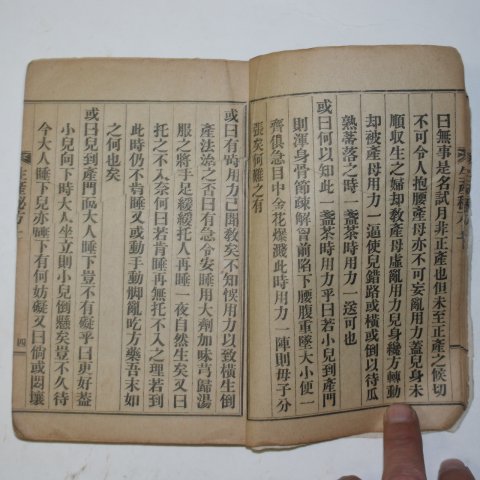 曰無事是名試月非正產也但未至正產之候切
不可令人抱腰產母亦不可妄亂用力兒身未
順収生之婦却教產母虛亂用力兒身纔方轉動
却被產母用力一逼使兒錯路或橫或倒以待瓜
熟蒂落之時一盞茶時用力一送可也
或曰何以知此一盞茶時用力乎曰若小兒到產門
則渾身骨節疎解胷前陷下腰腹重墜大小便一
齊俱急目中金花爆濺此時用力一陣則母子分
張矣何難之有
或曰有時用力已開教矣不知悞用力以致橫生倒
產法流之否曰有急令安睡用大劑加味芎歸湯
服之將手足緩緩托人再睡一夜自然生矣又曰
托之不入奈何曰若肯睡再無托不入之理若到
此時仍不肯睡又或動手動脚亂吃方藥吾末如
之何也矣
或曰兒到產門而大睡下豈不有礙乎曰更好蓋
小兒向下時大人坐立則小兒倒懸矣豈不久待
今大人睡下兒亦睡下有何妨礙又曰倘或悶壤
生產秘方
四